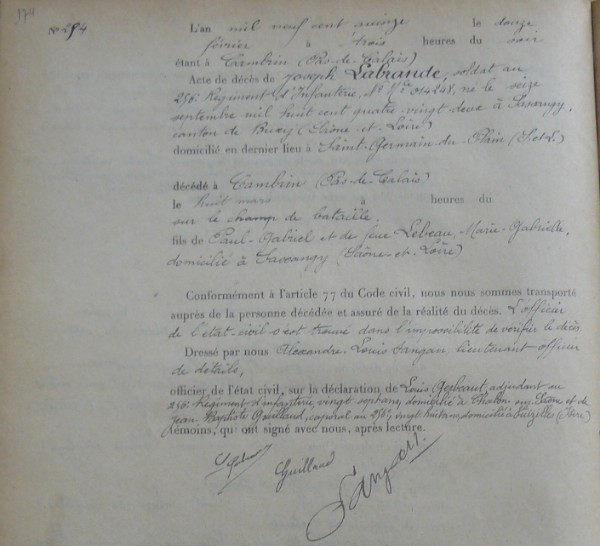 174
N° 294
L'an mil neuf cent quinze le douze
février à trois heures du soir
étant à Cambrin (Pas-de-Calais)
Acte de décès de Joseph Labrande, soldat au
256e Régiment d'Infanterie, N° Mle 014248, né le seize
septembre mil huit cent quatre-vingt deux à Sassangy,
canton de Buxy (Saône-et-Loire)
domicilié en dernier lieu à Saint-Germain-du-Plain (S.-et-L.)
décédé à Cambrin (Pas-de-Calais)
le huit mars à heures du
sur le champ de bataille,
fils de Paul-Gabriel et de feue Lebeau, Marie-Gabrielle,
domicilié à Sassangy (Saône-et-Loire)
Conformément à l'article 77 du Code civil, nous nous sommes transporté
auprès de la personne décédée et assuré de la réalité du décès. L'officier
de l'état-civil s'est trouvé dans l'impossibilité de vérifier le décès
Dressé par nous Alexandre-Louis Sangan, lieutenant officier
de détails,
officier de l'état civil, sur la déclaration de Louis adjudant au
256e Régiment d'infanterie, vingt sept ans, domicilié à Chalon sur Saône et de
Jean-Baptiste Guillaud, caporal au 256e, vingt huit ans, domicilié à (Isère)
témoins, qui ont signé avec nous, après lecture.
Guillaud
Sangan